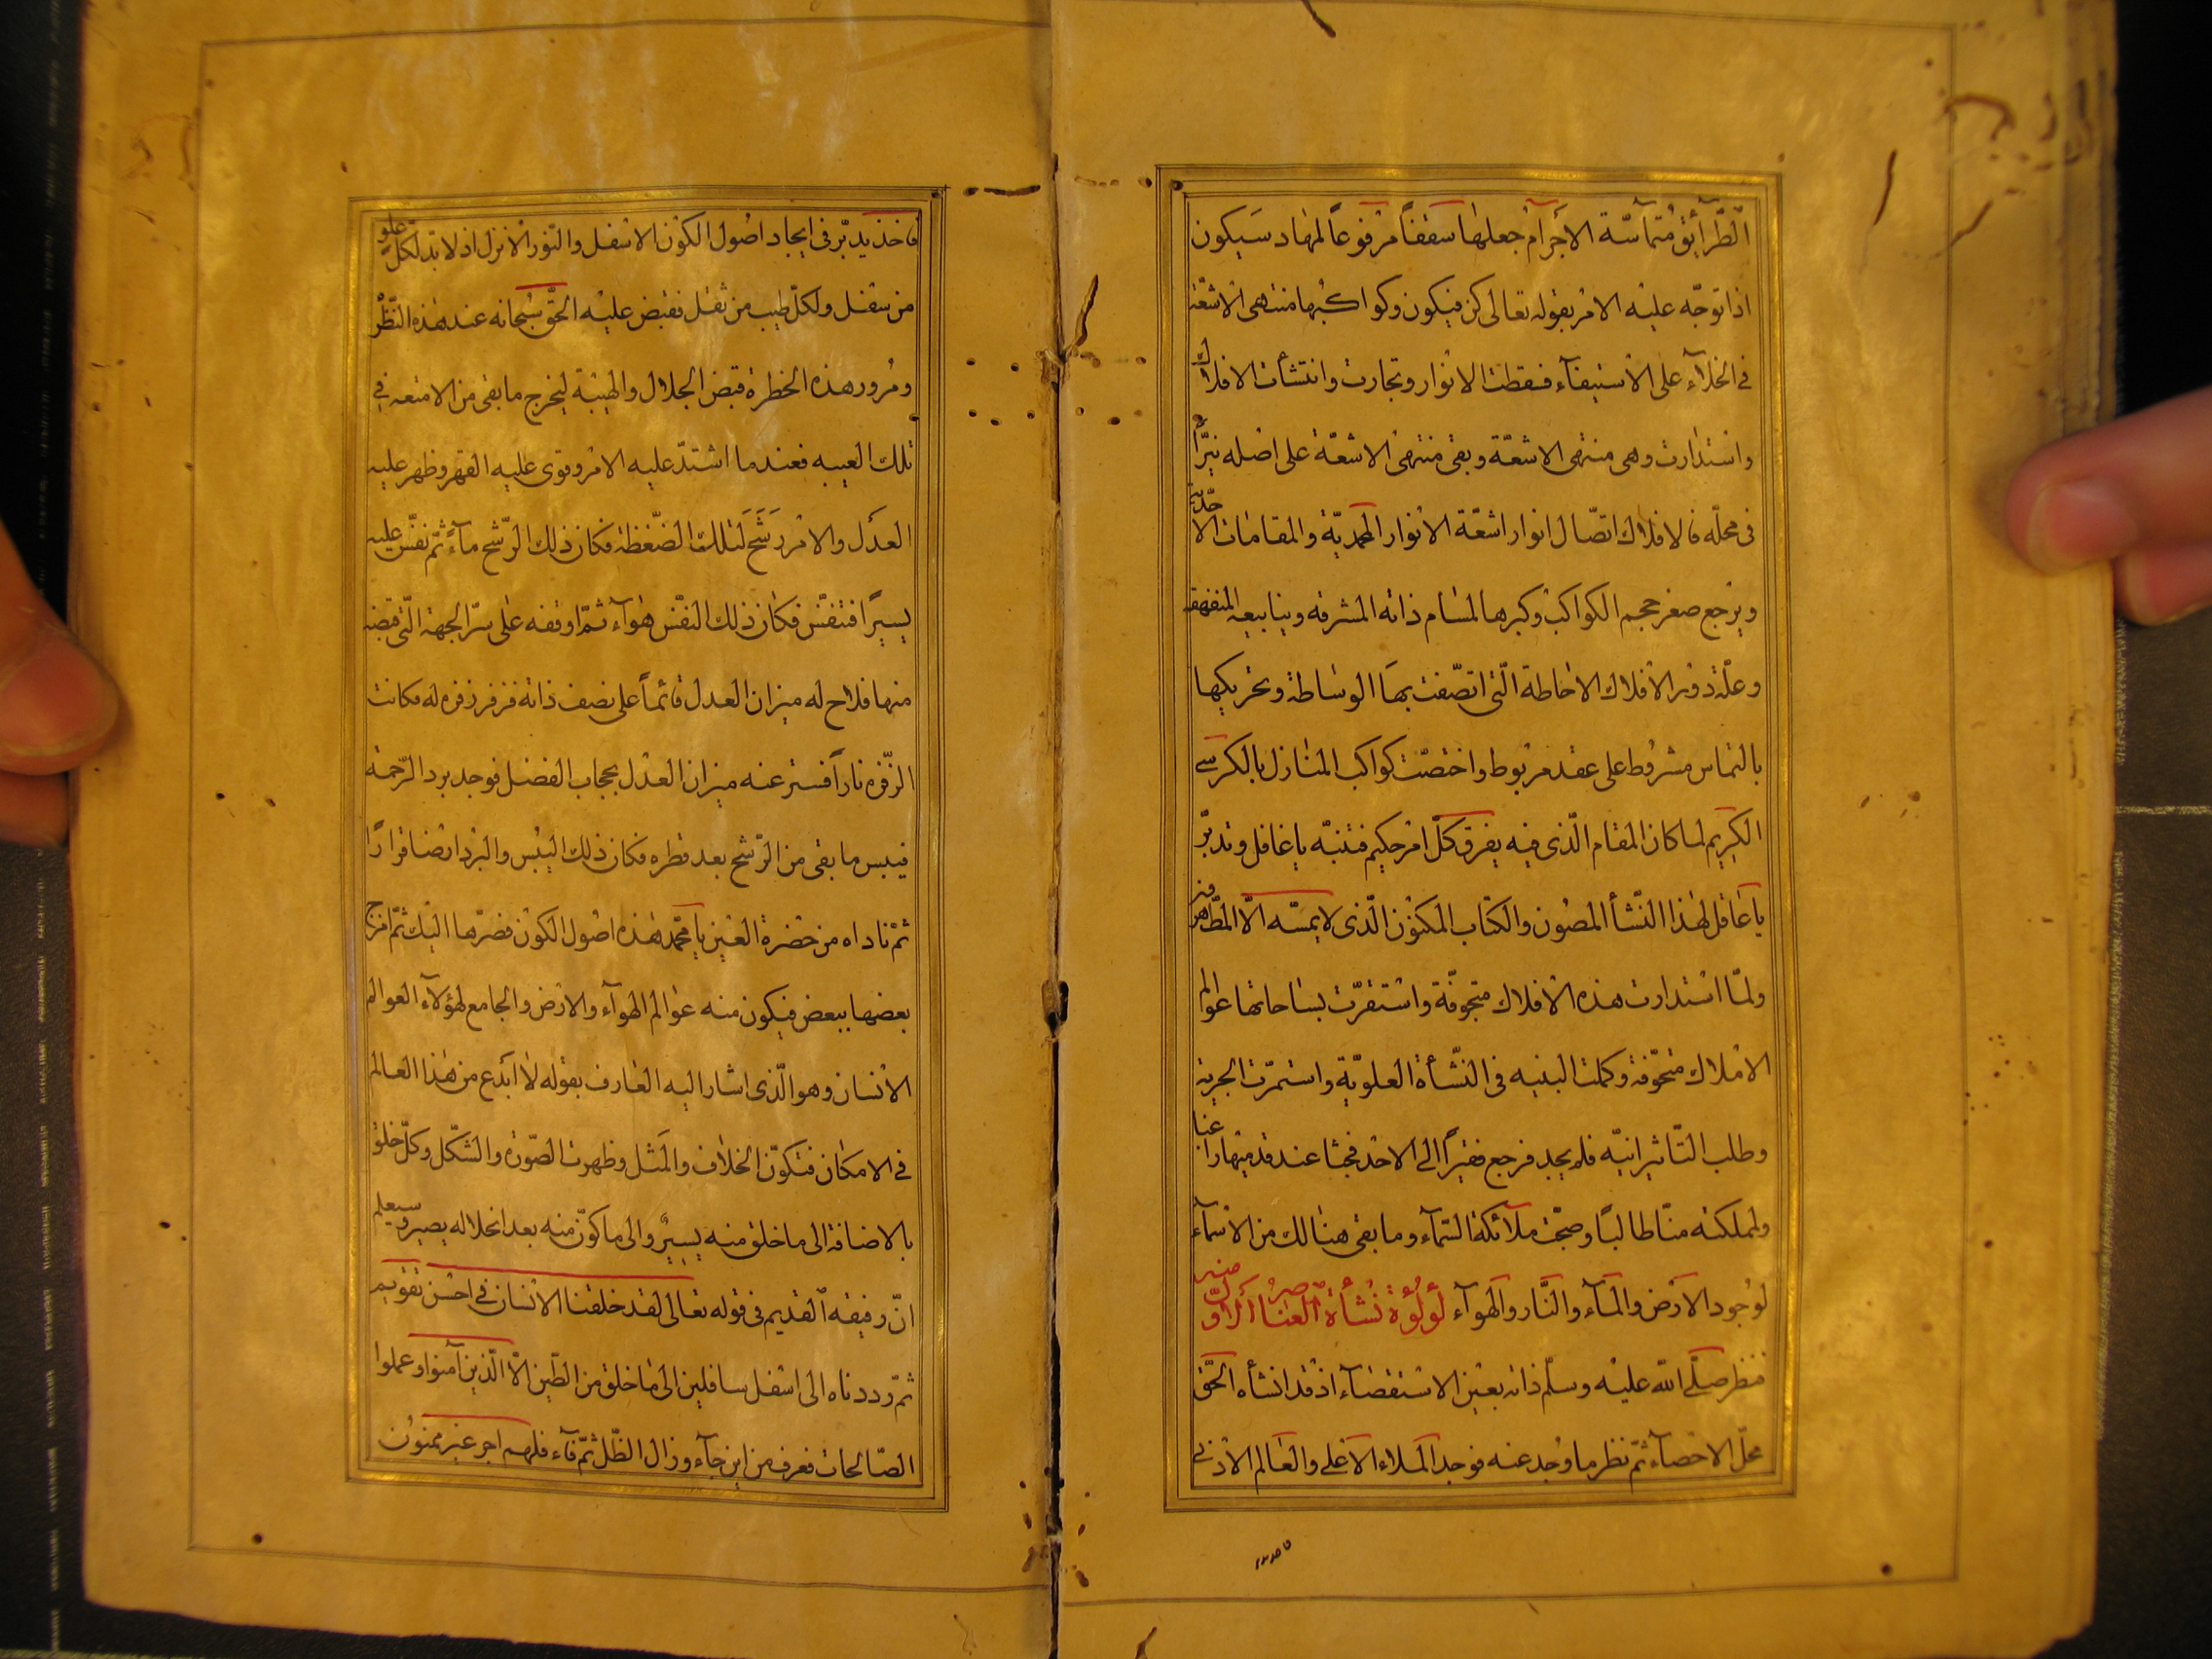 الطّرآئق متماسّة الأجرام جعلها سقفاً مرفوعاً لمهاد سيكون
اذا توجّه عليه الامر بقوله تعالى كن فيكون وكواكبها منتهى الاشعّة
فى الخلآء على الاستيفآء فسقطت الانوار وتجارت وانتشأت الافلاك
واستدارت وهى منتهى الاشعّة وبقى منتهى الاشعّة على اصله نيّراً
فى محلّه فالافلاك اتصّال انوار اشعّة الانوار المحمديّة والمقامات الاحديّة
ويرجع صغر حجم الكواكب وكبرها لمسام ذاته المشرفه وينابيعه المنفهقه
وعلّة دور الافلاك الاحاطة الّتى اتصّفت بها الوساطة وتحريكها
بالتماس مشروط على عقد مربوط واختصّت كواكب المنازل بالكرسى
الكريم لما كان المقام الّذى فيه يفرق كلّ امر حكيم فتنبّه ياغافل وتدبّر
ياعاقل لهذا النّشأ المصون والكتاب المكنون الّذى لايمسّه الّا المطّهرون
ولمّا استدارت هذه الافلاك متجوفّة واستقرّت بساحاتها عوالم
الاملاك متحوّفة وكملت البنيه فى النّشأة العلويّة واستمرّت الجرية
وطلب التّاثير انيّه فلم يجد فرجع فقيراً الى الاحد فجثا عند قدميها راغبا
ولملكته منّا طالبًا وضجّت ملآئكة السّمآء وما بقى هنالك من الاسمآء
لوجود الارض والمآء والنّار والهوآء لؤلؤة نشأة العناصر الاوّل منه
فنظر صلّى الله عليه وسلّم ذاته بعين الاستقضآء اذ قد انشأه الحقّ
محلّ الاحصآء ثمّ نظر ما وجد عنه فوجد الملاء الاعلى والعالم الادنى
فاخذ
فاخذ يدبّر فى ايجاد اصول الكون الاسفل والنّور الانزل اذ لا بدّ لكلّ علو
من سفل ولكلّ طيب من ثفل فقبض عليه الحقّ سبحانه عند هذه النّظر
ومرور هذه الخطرة قبض الجلال والهيبة ليخرج ما بقى من الامتعه فى
تلك العيبه فعندما اشتدّ عليه الامر وقوى عليه القهر وظهر عليه
العدل والامر رشح لتلك الضّغظة فكان ذلك الرّشح مآءً ثمّ نفّس عليه
يسيرًا فتنفّس فكان ذلك النفّس هوآء ثمّ اوقفه على سرّ الجهة الّتى قبضه
منها فلاح له ميزان العدل قائماً على نصف ذاته فزفر زفره له فكانت
الزّفره ناراً فستر عنه ميزان العدل بحجاب الفضل فوجد برد الرّحمة
فيبس ما بقى من الرّشح بعد قطره فكان ذلك اليبس والبرد ارضا قرارًا
ثمّ ناداه من حضرة العين يامحمّد هذه اصول الكون فصرّها اليك ثمّ امزج
بعضها ببعض فيكون منه عوالم الهوآء والارض والجامع لهؤلآء العوالم
الانسان وهو الّذى اشار اليه العارف بقوله لا أبدع من هذا العالم
فى الامكان فتكوّن الخلاف والمثل وظهرت الصّورة والشكّل وكلّ خلق
بالاضافة الى ما خلق منه يسيرٌ والى ما كوّن منه بعد انحلاله يصير وسيعلم
انّ وفيقه القديم فى قوله تعالى لقد خلقنا الانسان فى احسن تقويم
ثمّ رددناه الى اسفل سافلين الى ما خلق من الطّين الّا الّذين آمنوا وعملوا
الصّالحات فعرف من اين جآء وزال الظّل ثمّ فآء فلهم اجر غير ممنون